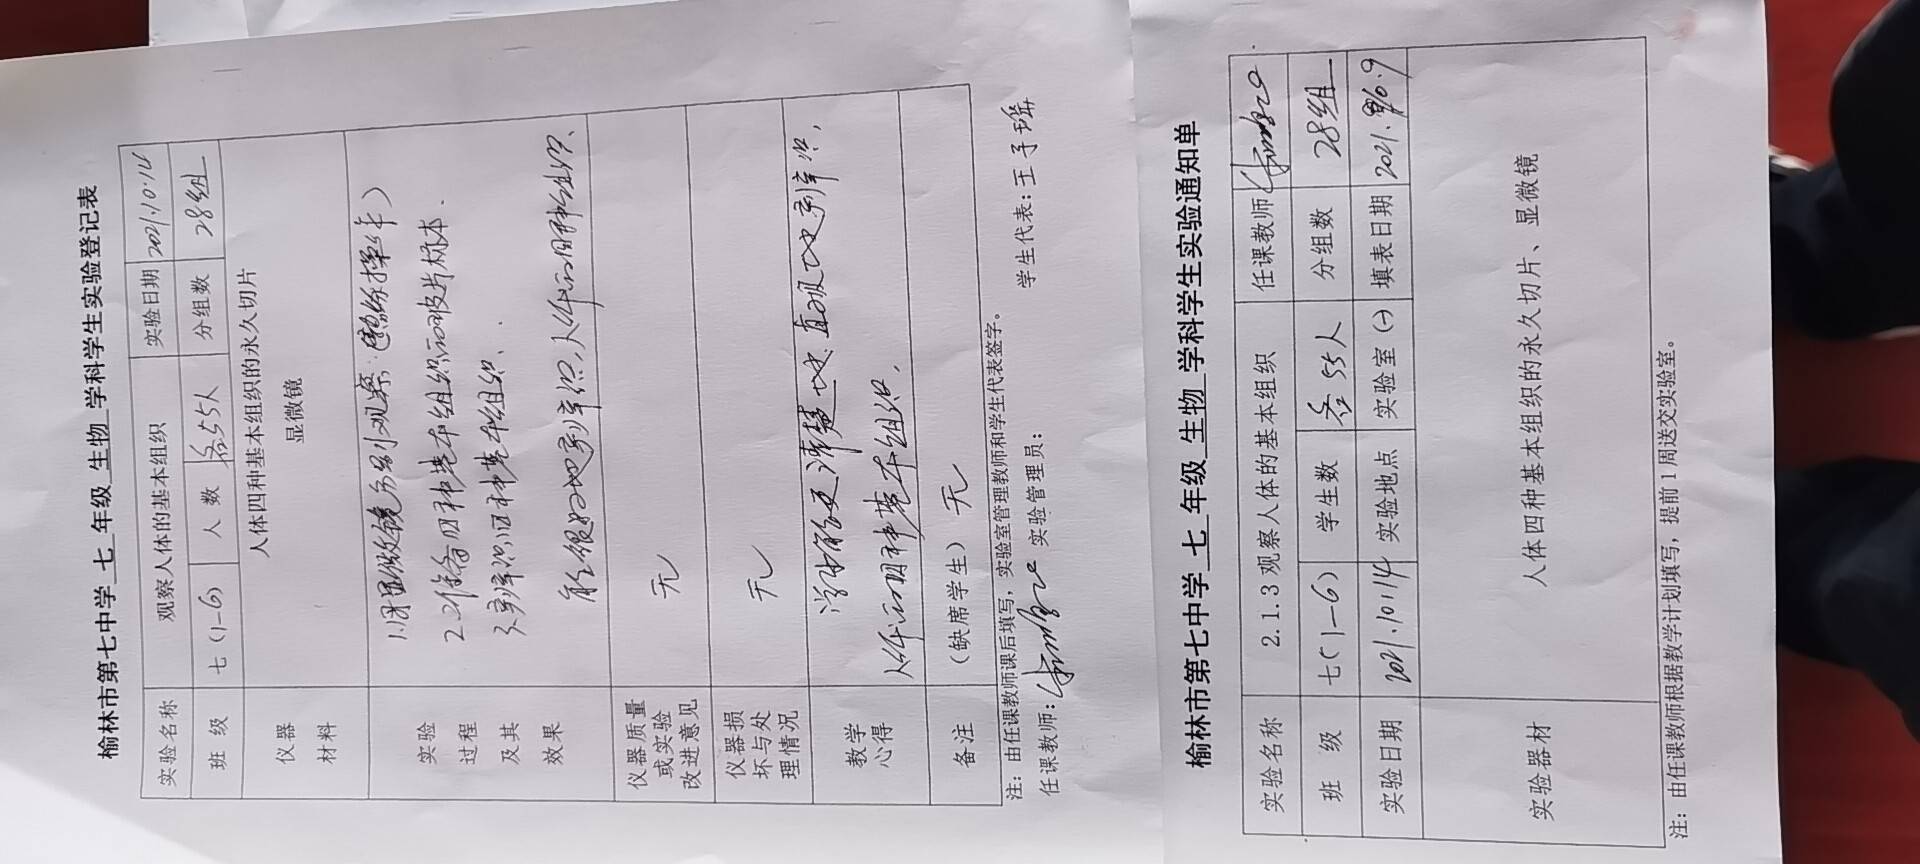 榆林市第七中学 七 年级 生物 学科学生实验登记表
实验名称 观察人体的基本组织 实验日期 2021.10.14
班 级 七(1-6) 人 数 各55人 分组数 28组
仪器 材料 人体四种基本组织的永久切片
显微镜
实验 过程 及其 效果
1.用显微镜分别观察(熟练操作)
2.准备四种基本组织的玻片标本.
3.观察识别四种基本组织.
能很好地识别人体的四种组织.
仪器质量 或实验 改进意见 无
仪器损 坏与处 理情况 无
教学 心得
人体的四种基本组织.
备注 (缺席学生) 无
注: 由任课教师课后填写, 实验室管理教师和学生代表签字。
任课教师: 实验管理员: 学生代表: 王子
榆林市第七中学 七 年级 生物 学科学生实验通知单
实验名称 2.1.3 观察人体的基本组织 任课教师
班 级 七(1-6) 学生数 各55人 分组数 28组
实验日期 2021.10.14 实验地点 实验室(一) 填表日期 2021.10.9
实验器材 人体四种基本组织的永久切片、显微镜
注: 由任课教师根据教学计划填写, 提前1周送交实验室。